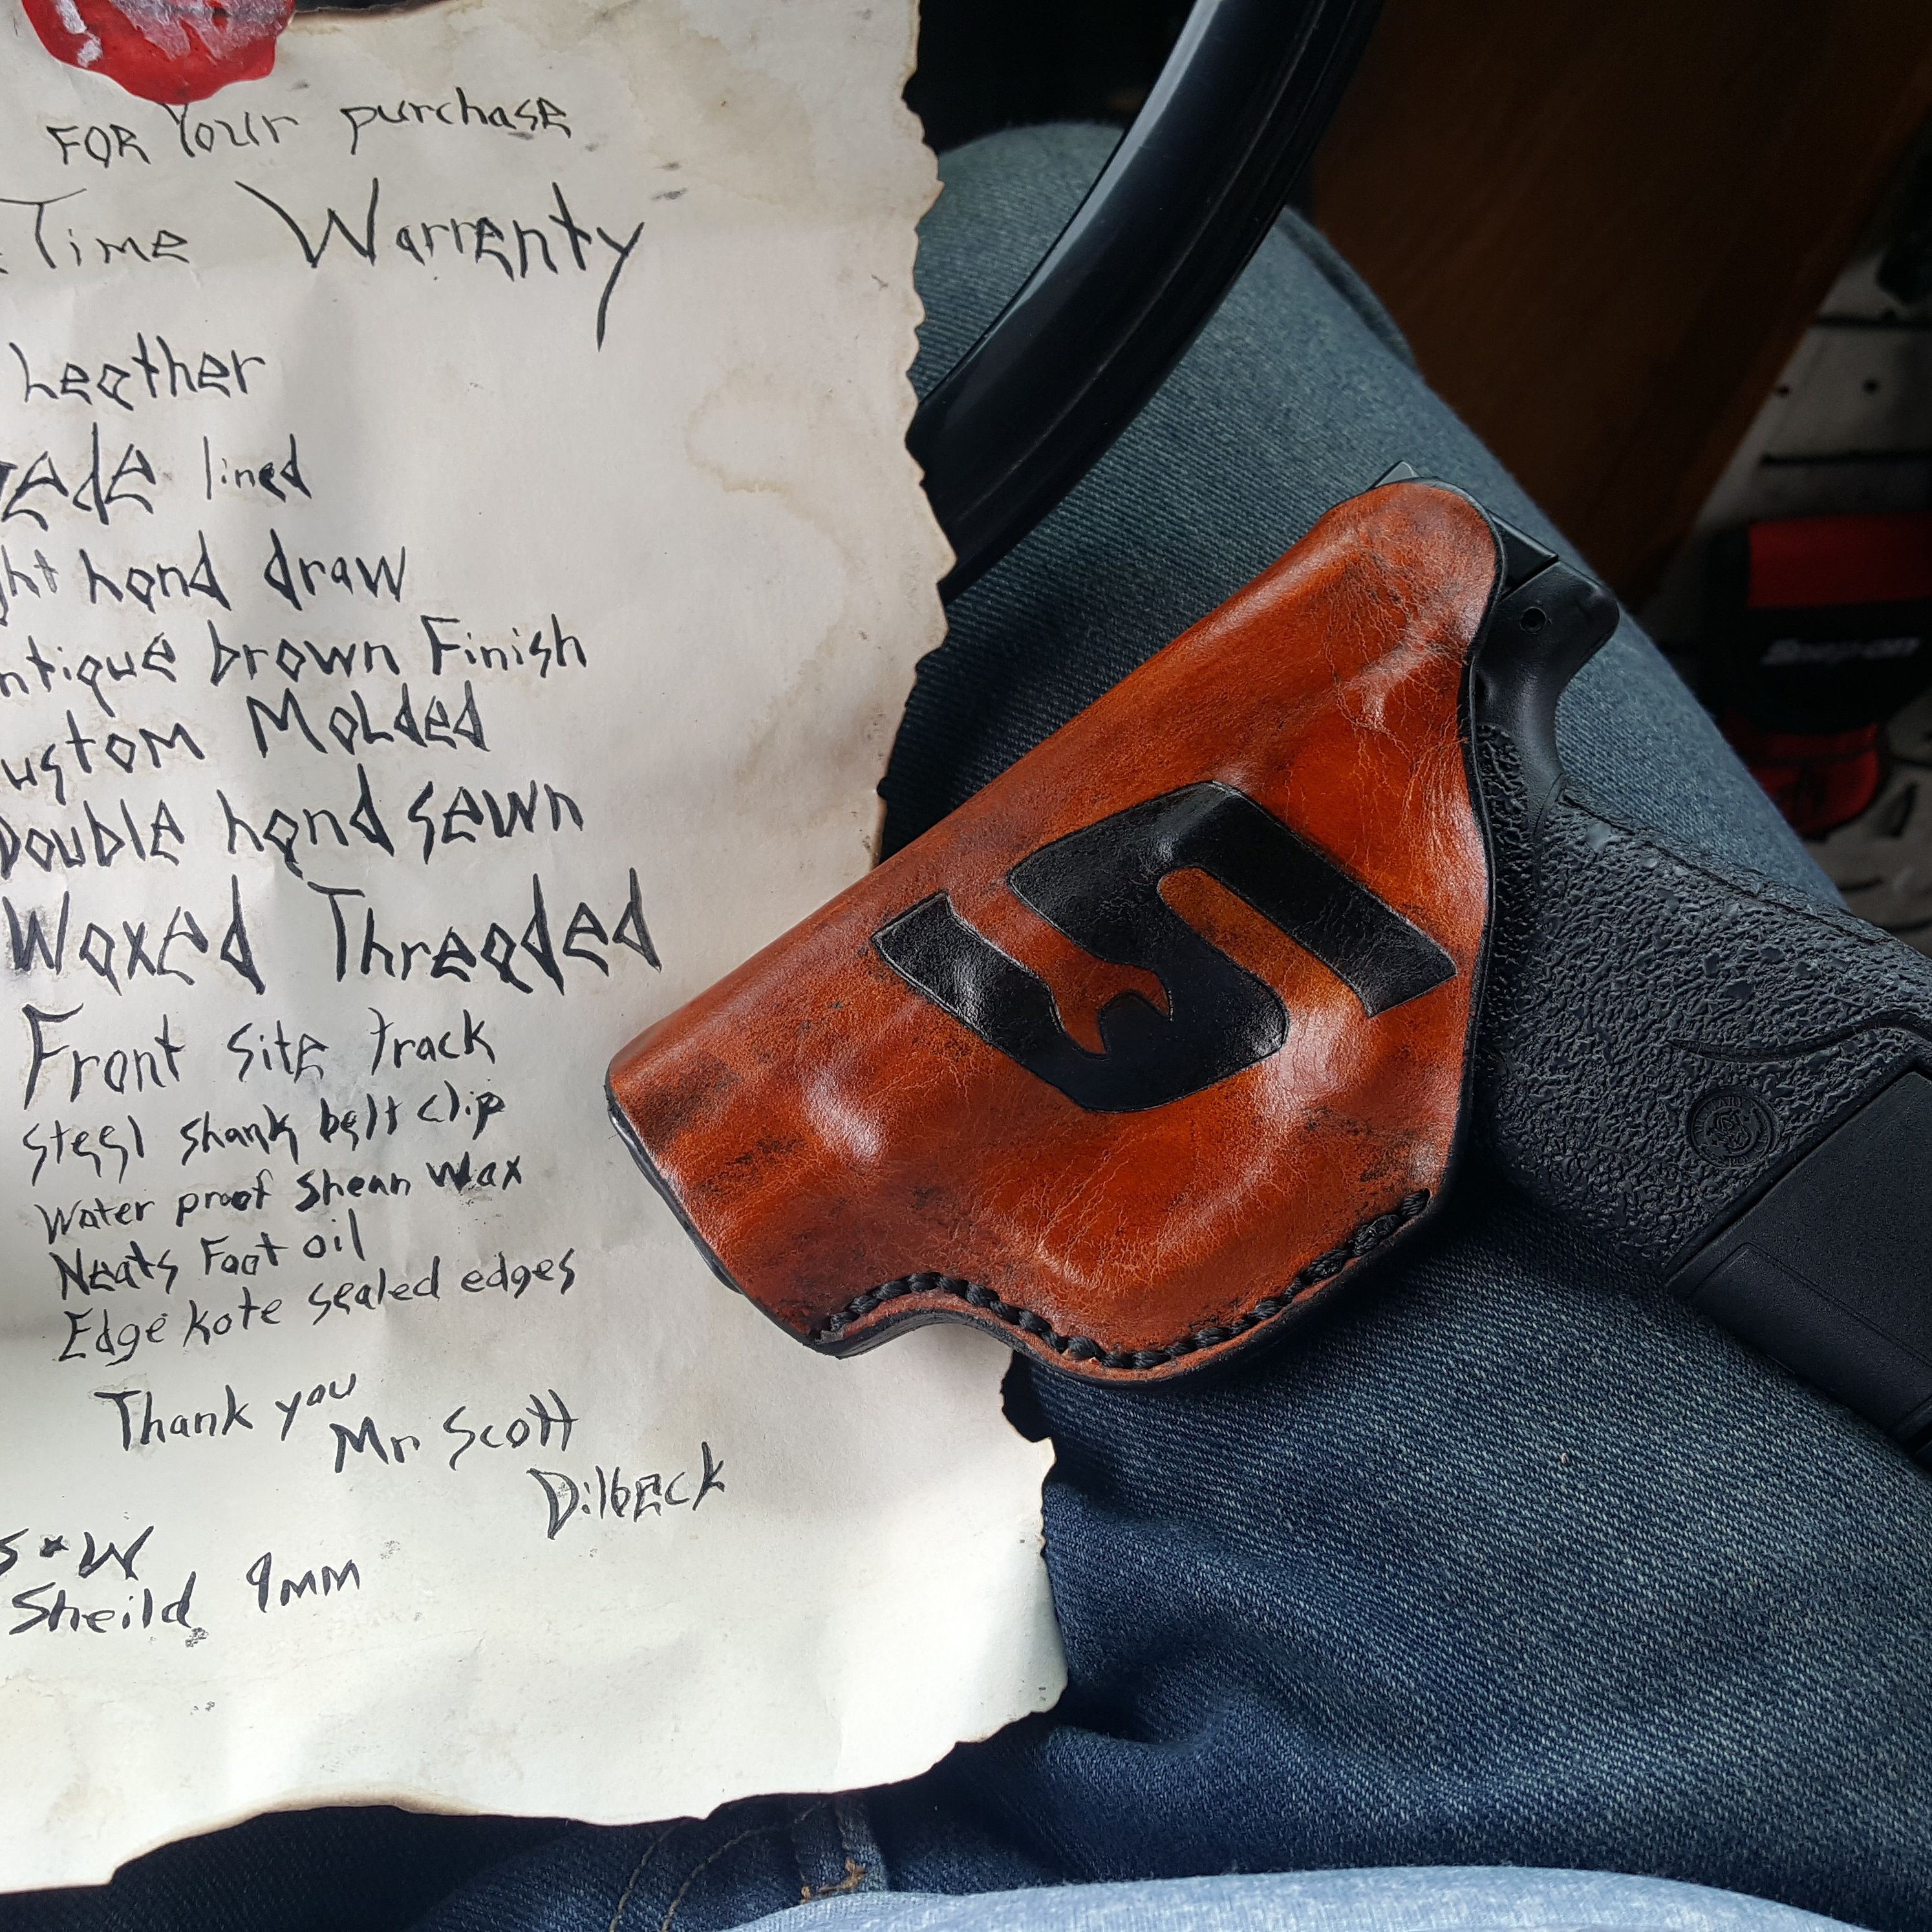 FOR Your purchase
Time Warrenty
Leather
lined
hand draw
ntique brown Finish
ustom Molded
Double hand sewn
Waxed Threaded
Front site track
steel shank belt clip
Water proof shean wax
Neats Foot oil
Edge kote sealed edges
Thank you
Mr Scott
Dilbeck
S*W
Sheild 9mm
Snap-on